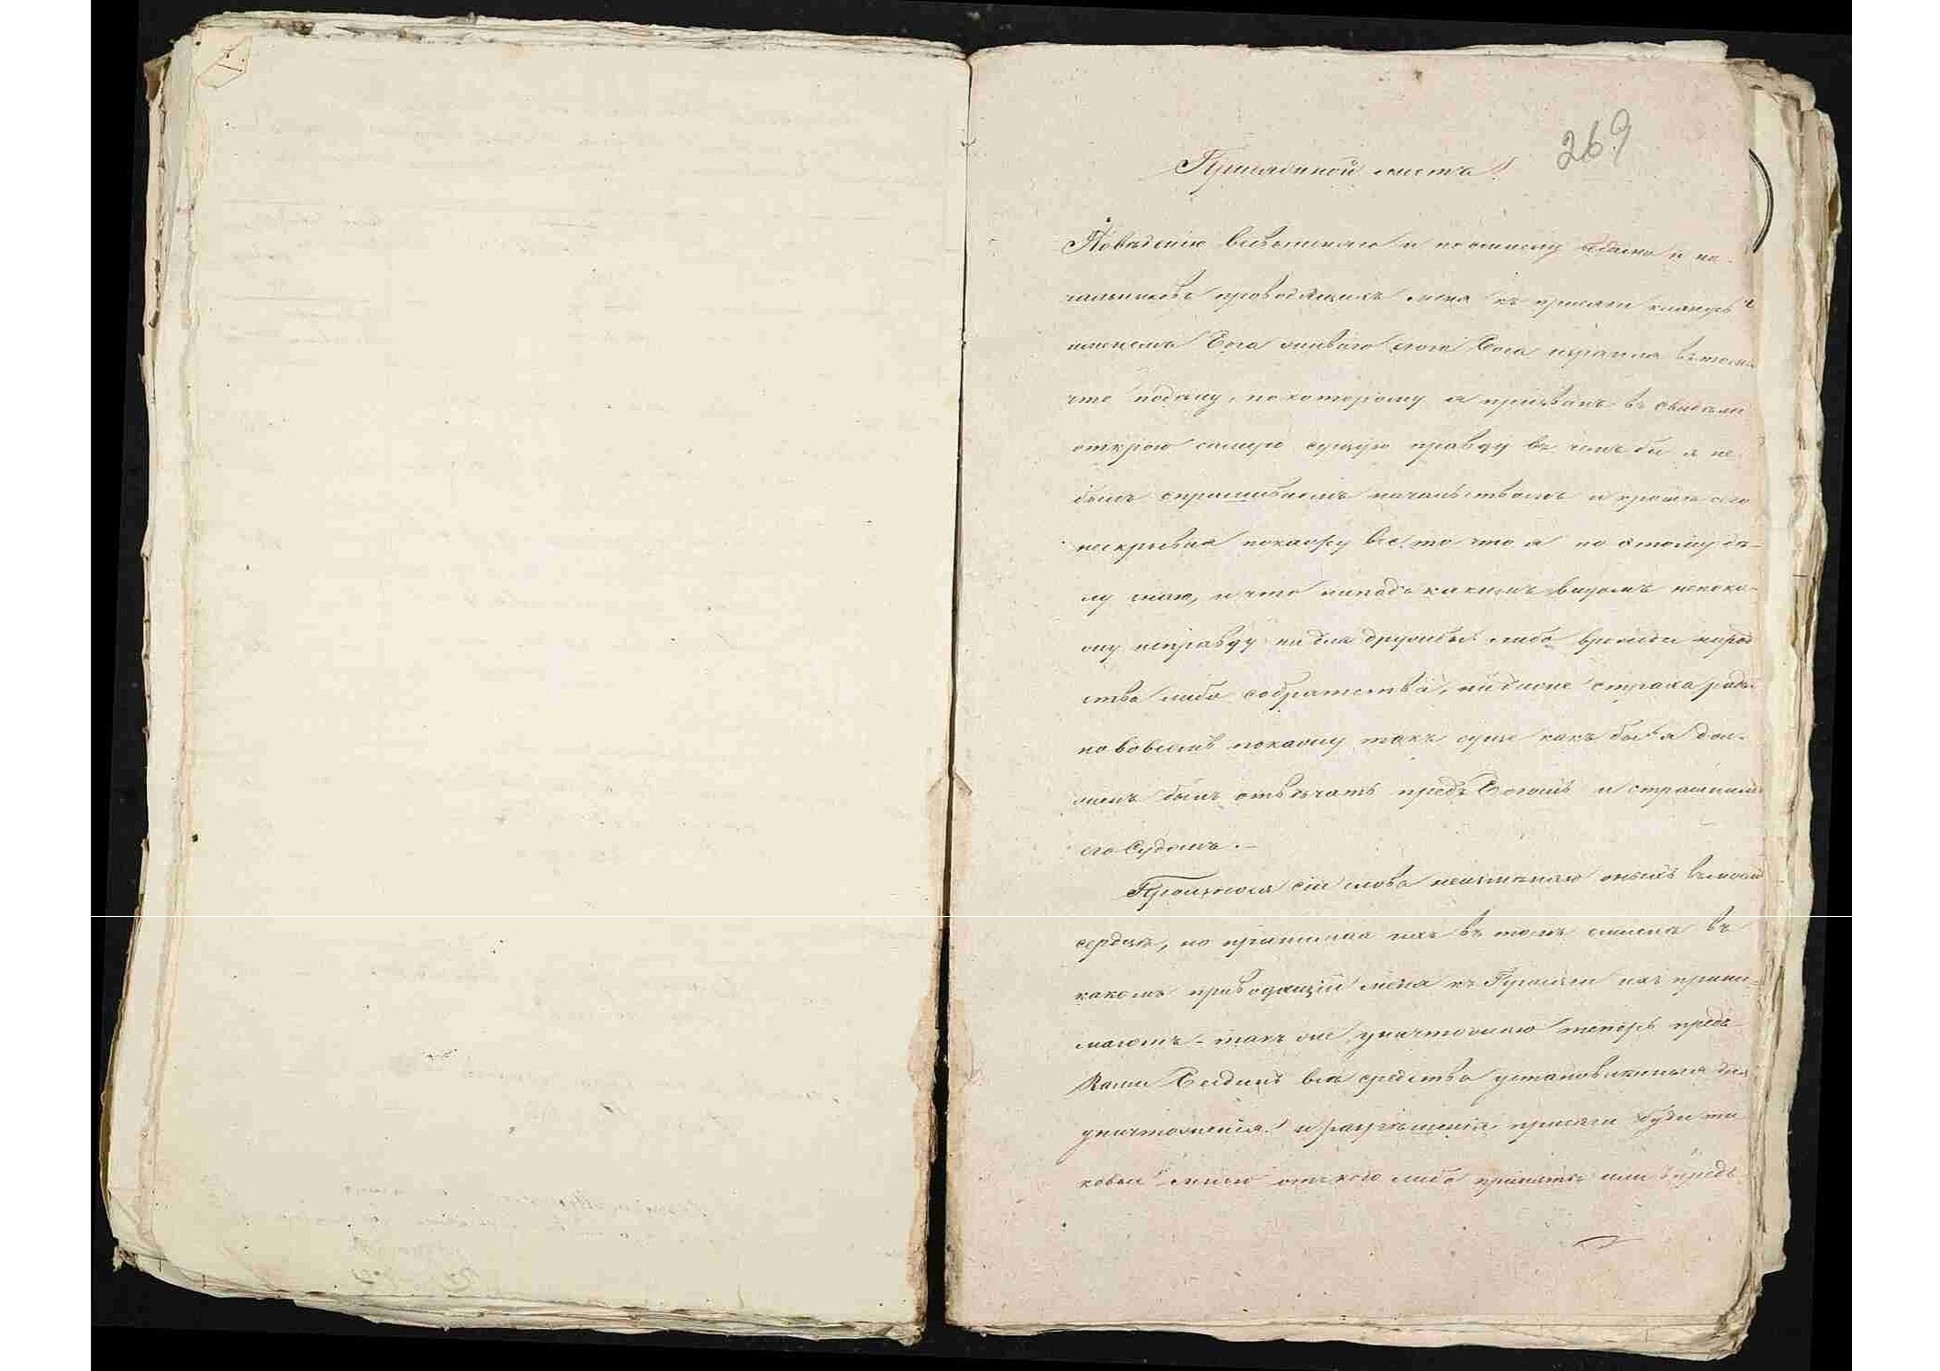 269
Присяжной листъ
Поведенію всевышняго и по оному Адаю и на-
чальниковъ проводящихъ меня къ присяги клянусь
именемъ Бога живаго сего Бога израиля въ томъ
что по делу, по которому я призванъ въ свидѣтели
открою самую сущую правду въ чемъ бы я не
былъ спрашиваемъ начальствомъ и кромѣ сего
нескрывая покажу все то что я по этому дѣ-
лу знаю, и что ниподъ какимъ видомъ непока-
жу неправду ни для дружбы либо вражды народ
ства либо собратства, ни же страха ради
но вовсемъ покажу такъ суще какъ бы я дол-
женъ былъ отвѣчать предъ Богомъ и страшнымъ
его Судомъ. —
Произнося сіи слова неизмѣняю оныхъ въ моемъ
сердцѣ, но принимая ихъ въ томъ смыслѣ въ
какомъ приводящіи меня къ Присяги ихъ прини-
маютъ - такъ же уничтожаю теперь предъ
Вами Беэдинъ всѣ средства установленныя для
уничтоженія и разрѣшенія присяги буди та
ковыя мною отъ кого либо приняты или впредь